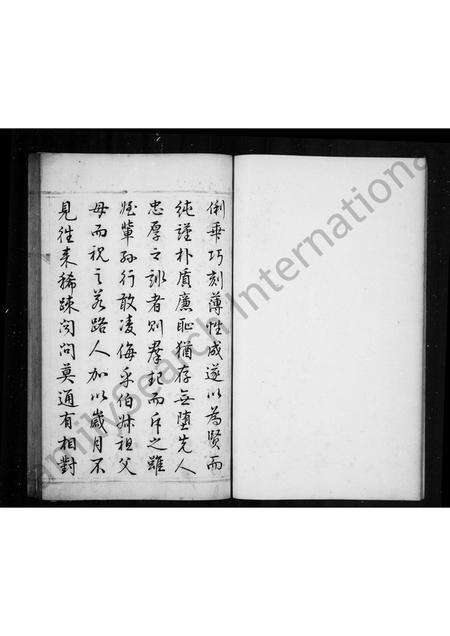 俐乖巧刻薄性成遂以為賢而
純謹朴质廉恥猶存無墮先人
忠厚之訓者則羣起而斥之雖
姪輩孫行敢凌侮乎伯叔祖父
母而視之若路人加以歲月不
見往来稀疎闻问莫通有相對
FamilySearch International